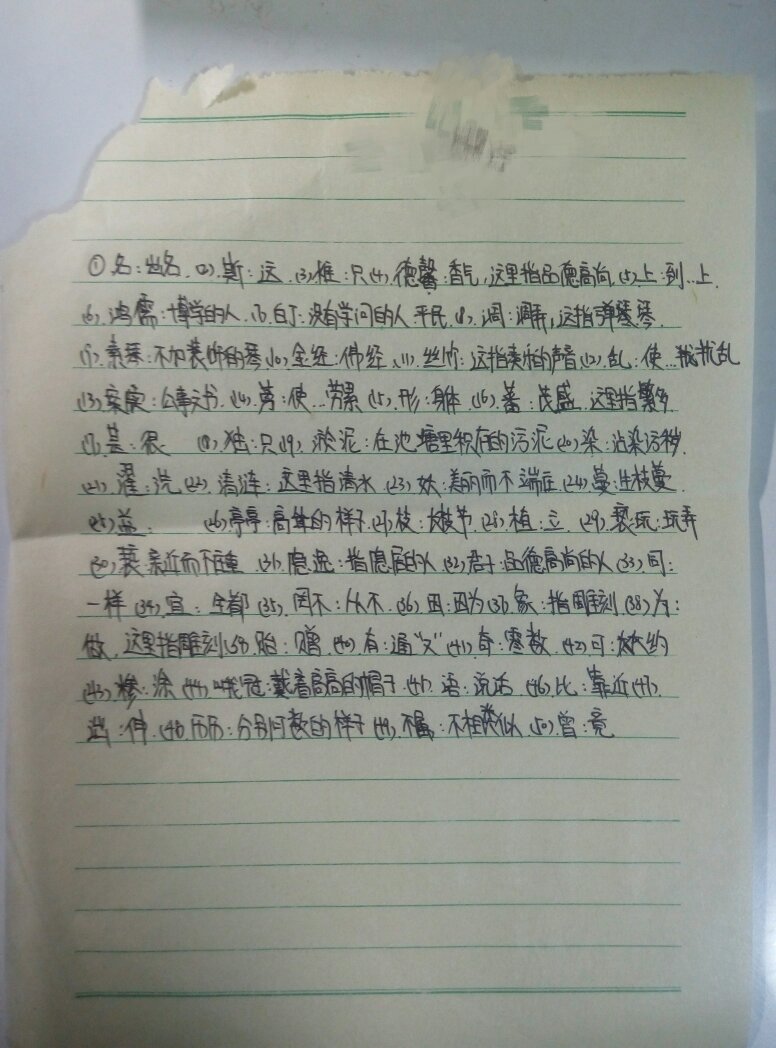 ①名:出名 (2)、斯:这 (3)惟:只 (4)、德馨:香气,这里指品德高尚 (5)上:到…上
(6)、鸿儒:博学的人 (7)、白丁:没有学问的人 平民 (8)、调:调弄,这指弹琴
(9)、素琴:不加装饰的琴 (10)、金经:佛经 (11)、丝竹:这指奏乐的声音 (12)、乱:使…扰乱
(13)案牍:公事文书 (14)、劳:使…劳累 (15)、形:身体 (16)、蕃:茂盛 这里指繁多
(17)甚:很 (18)、独:只 (19)、淤泥:在池塘里积存的污泥 (20)染:沾染污秽
(21)、濯:洗 (22)、清涟:这里指清水 (23)、妖:美丽而不端庄 (24)、蔓:生枝蔓
(25)益: (26)亭亭:高耸的样子 (27)枝:长枝节 (28)、植:立 (29)、亵玩:玩弄
(30)亵亲近而不庄重 (31)、隐逸:指隐居的人 (32)君子:品德高尚的人 (33)同:
一样 (34)宜:全都 (35)、罔不:从不 (36)、因:因为 (37)象:指雕刻 (38)为:
做,这里指雕刻 (39)、贻:赠 (40)、有:通"又" (41)奇:零数 (42)可:大约
(43)、糁:涂 (44)峨冠:戴着高高的帽子 (45)、语:说话 (46)、比:靠近 (47)、
:件 (48)历历:分明可数的样子 (49)、不属:不相类似 (50)、曾:竟